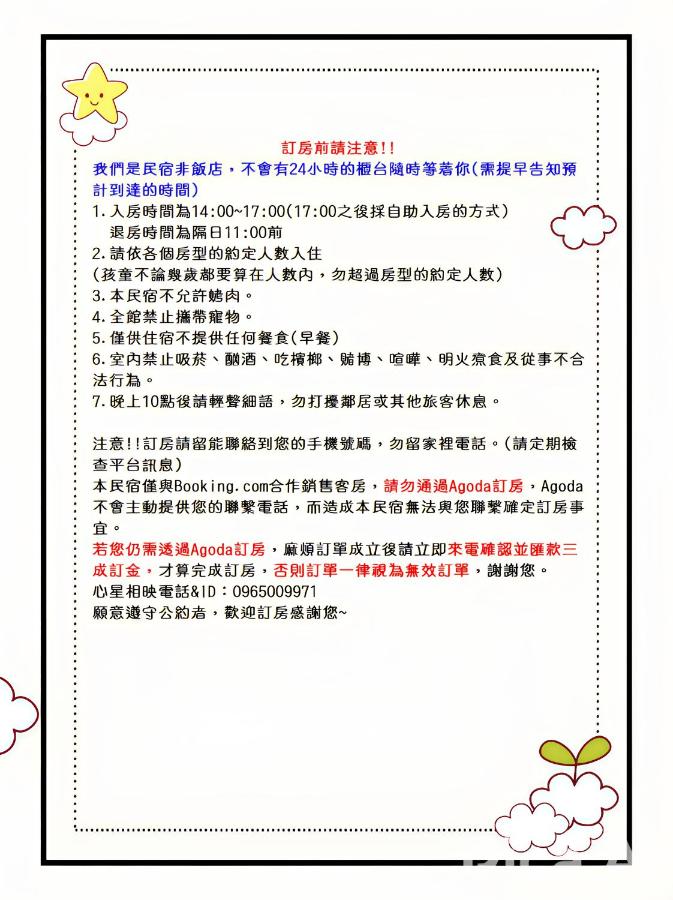 訂房前請注意!!
我們是民宿非飯店，不會有24小時的櫃台隨時等著你(需提早告知預
計到達的時間)
1.入房時間為14:00~17:00(17:00之後採自助入房的方式)
退房時間為隔日11:00前
2.請依各個房型的約定人數入住
(孩童不論幾歲都要算在人數內，勿超過房型的約定人數)
3.本民宿不允許烤肉。
4.全館禁止攜帶寵物。
5.僅供住宿不提供任何餐食(早餐)
6.室內禁止吸菸、酗酒、吃檳榔、賭博、喧嘩、明火煮食及從事不合
法行為。
7.晚上10點後請輕聲細語，勿打擾鄰居或其他旅客休息。
注意!!訂房請留能聯絡到您的手機號碼，勿留家裡電話。(請定期檢
查平台訊息)
本民宿僅與Booking.com合作銷售客房，請勿通過Agoda訂房，Agoda
不會主動提供您的聯繫電話，而造成本民宿無法與您聯繫確定訂房事
宜。
若您仍需透過Agoda訂房，麻煩訂單成立後請立即來電確認並匯款三
成訂金，才算完成訂房，否則訂單一律視為無效訂單，謝謝您。
心星相映電話&ID：0965009971
願意遵守公約者，歡迎訂房感謝您~